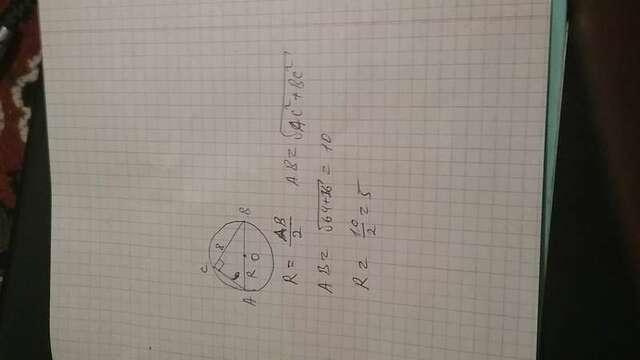 C
6 8
A R O B
R = AB/2 AB = √AC²+BC²
AB = √64+36 = 10
R = 10/2 = 5